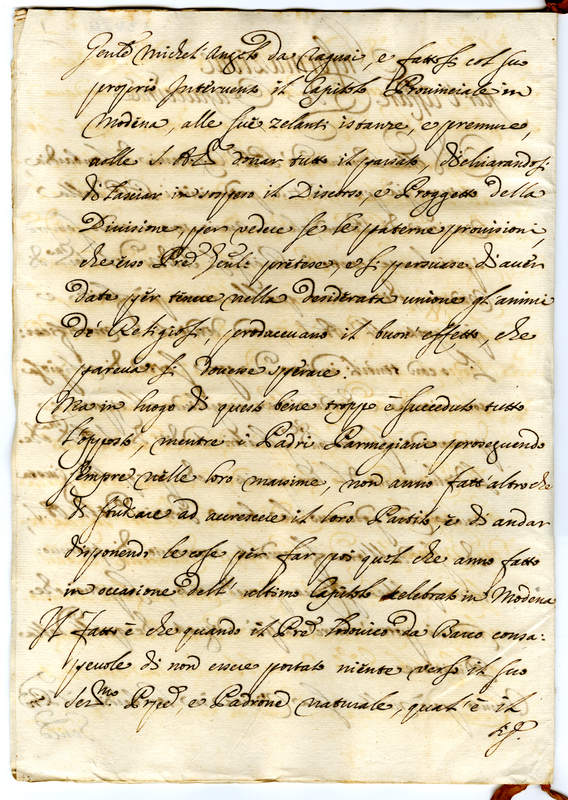 Genle Michel' Angelo da Ragusi, e fattosi col suo
proprio Intervento il Capitolo Provinciale in
Modena, alle sue zelanti istanze, e premure,
volle S. A. donar tutto il passato, dichiarandosi
di lasciar in sospeso il Discorso, e Proggetto della
Divisione per vedere se le paterne provisioni,
che esso Pre Genle pretese, e si persuase di aver
date per tenere nella desiderata unione gl'animi
de' Religiosi, producevano il buon' effetto, che
pareva si dovesse sperare.
Ma in luogo di questo bene troppo è succeduto tutto
l'opposto, mentre i Padri Parmegiani proseguendo
sempre nelle loro massime, non anno fatt'altro che
di studiare ad accrescere il loro Partito, e di andar
disponendo le cose per far poi quel che anno fatto
in occasione dell' ultimo Capitolo celebrato in Modena
Il fatto è che quando il Pre Lodovico da Bacco consa:
pevole di non essere portato niente verso il suo
Sermo Prpe, e Padrone naturale, qual' è il